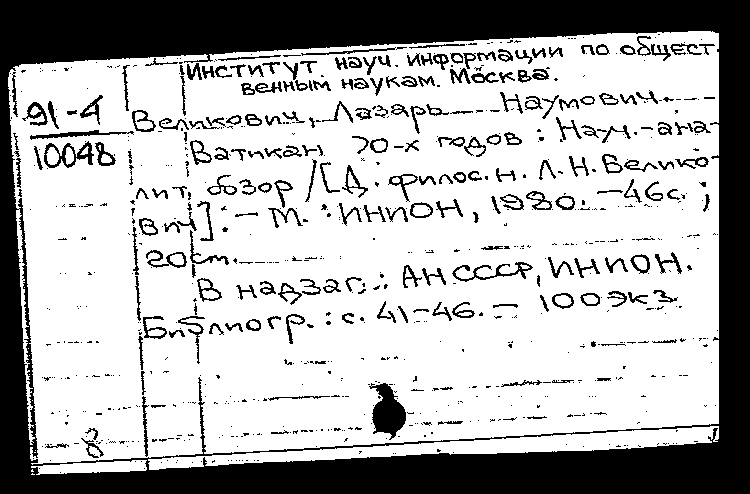 Институт науч. информации по общест-
венным наукам. Москва.
91-4
10048
Великович, Лазарь Наумович.
Ватикан 70-х годов : Науч.-ана-
лит. обзор / [Д. филос. н. Л. Н. Велико-
вич]. - М. : ИНИОН, 1980. - 46 с. ;
20 см.
В надзаг.: АН СССР, ИНИОН.
Библиогр. : с. 41-46. - 100 экз.
8